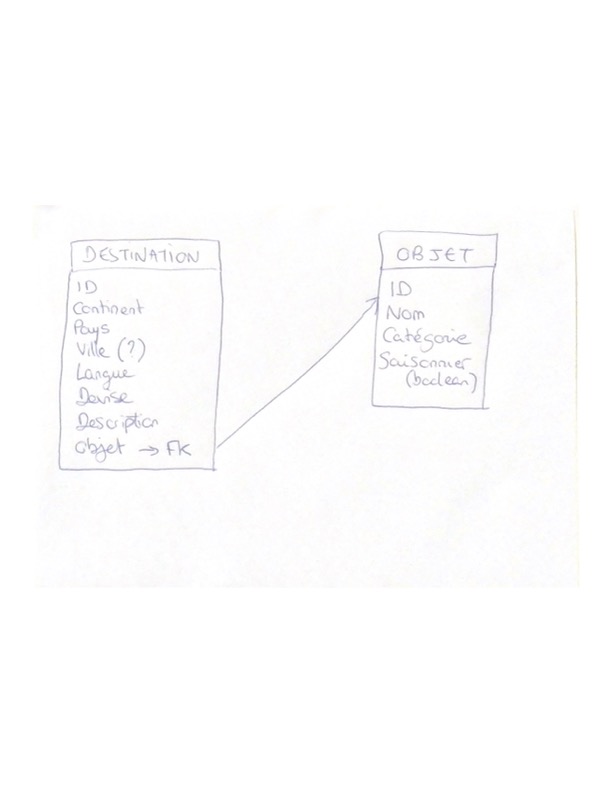 DESTINATION
ID
Continent
Pays
Ville (?)
Langue
Devise
Description
Objet → FK
OBJET
ID
Nom
Catégorie
Saisonnier
(boolean)